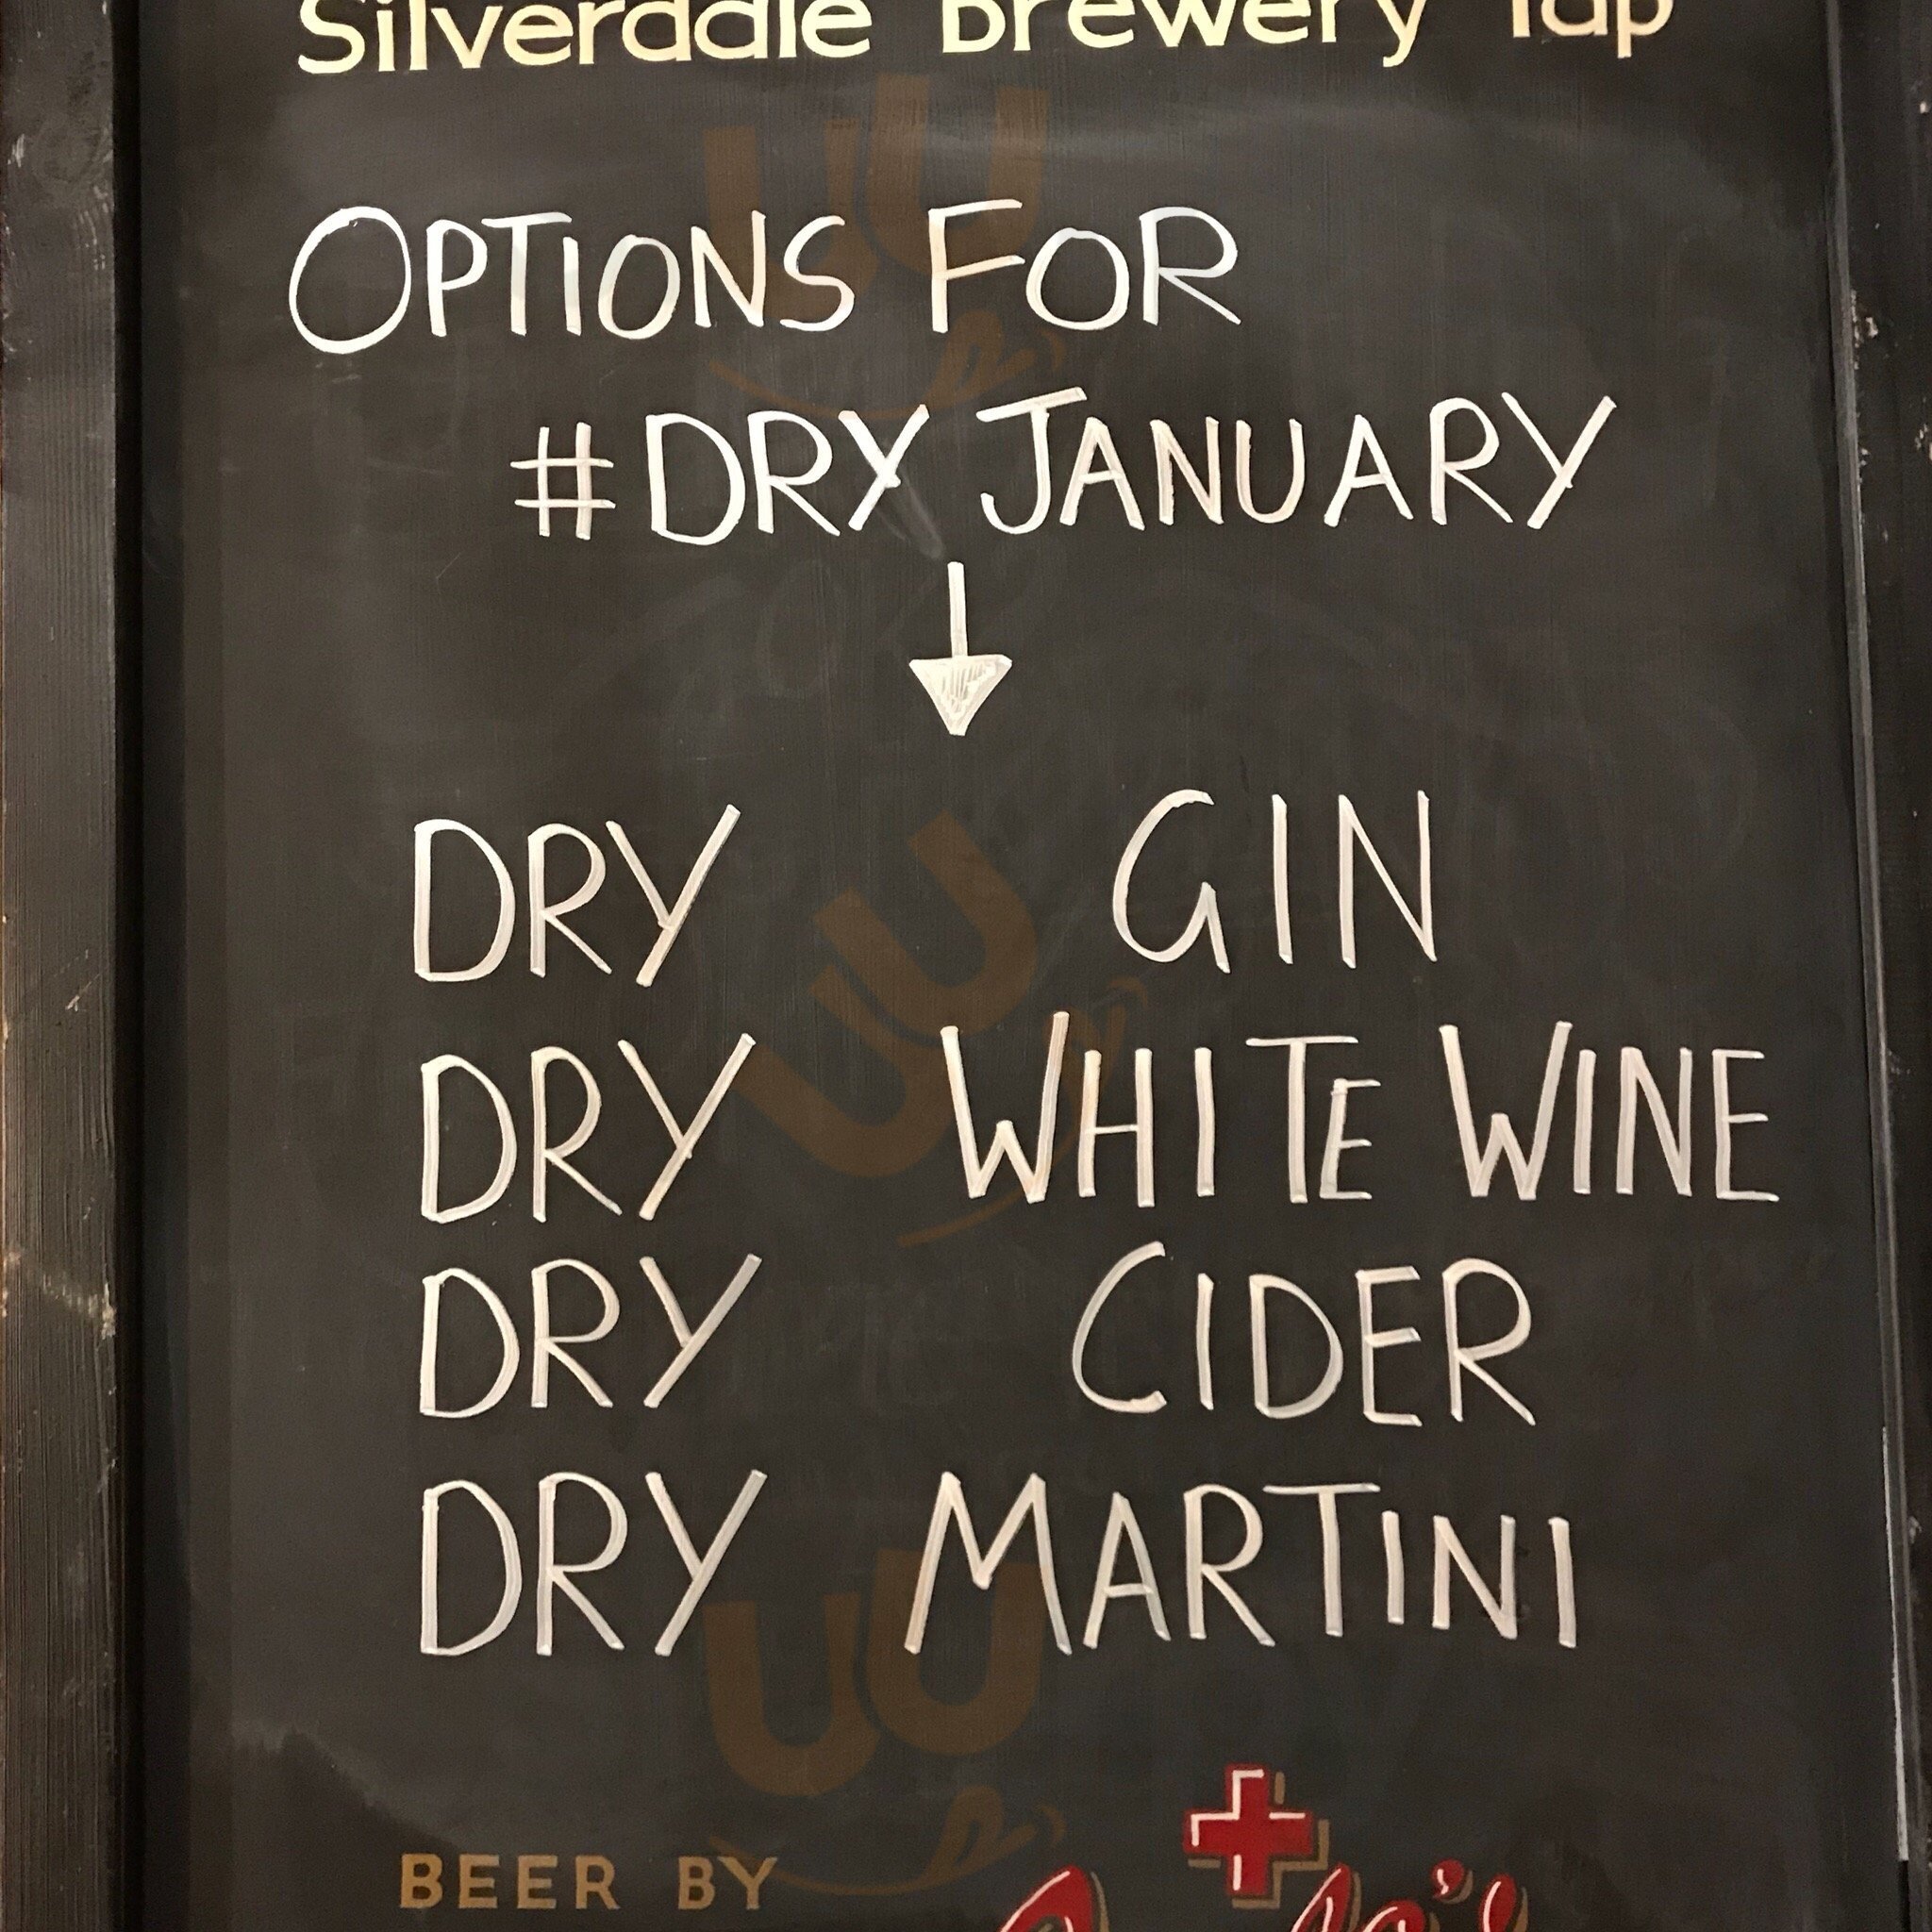 Silverdale Brewery Tap
OPTIONS FOR
#DRY JANUARY
DRY GIN
DRY WHITE WINE
DRY CIDER
DRY MARTINI
BEER BY